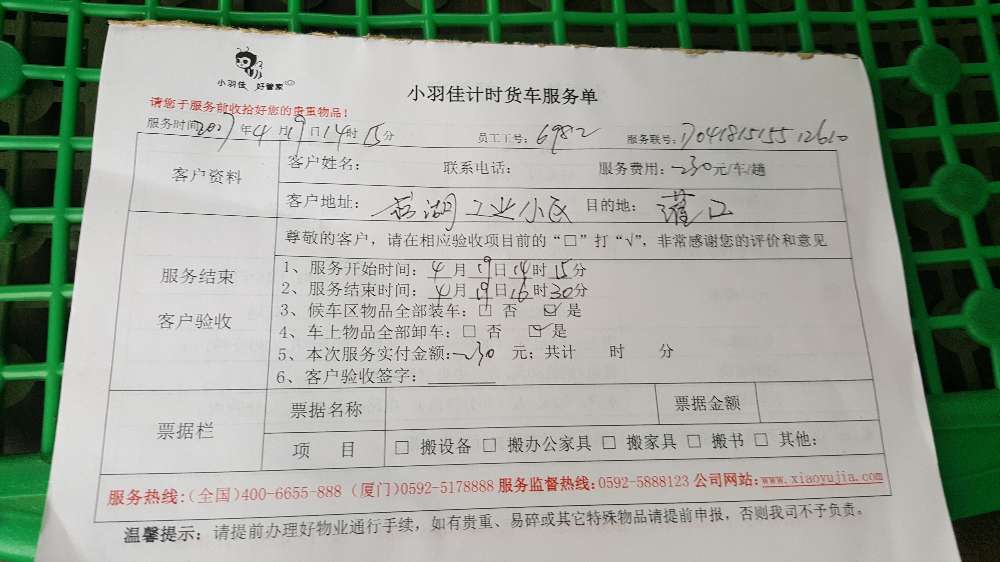 小羽佳 好管家
小羽佳计时货车服务单
请您于服务前收拾好您的贵重物品！
服务时间2017年4月19日14时15分 员工工号：6982 服务联号：1704181515512610
客户资料
客户姓名： 联系电话： 服务费用：230元/车/趟
客户地址： 湖工业小区 目的地：灌口
服务结束
客户验收
尊敬的客户，请在相应验收项目前的“□”打“√”，非常感谢您的评价和意见
1、服务开始时间：4月19日14时15分
2、服务结束时间：4月19日16时30分
3、候车区物品全部装车：□ 否 ☑ 是
4、车上物品全部卸车：□ 否 ☑ 是
5、本次服务实付金额：230 元；共计 时 分
6、客户验收签字：
票据栏
票据名称 票据金额
项 目 □ 搬设备 □ 搬办公家具 □ 搬家具 □ 搬书 □ 其他：
服务热线：（全国）400-6655-888（厦门）0592-5178888 服务监督热线：0592-5888123 公司网站：www.xiaoyujia.com
温馨提示：请提前办理好物业通行手续，如有贵重、易碎或其它特殊物品请提前申报，否则我司不予负责。